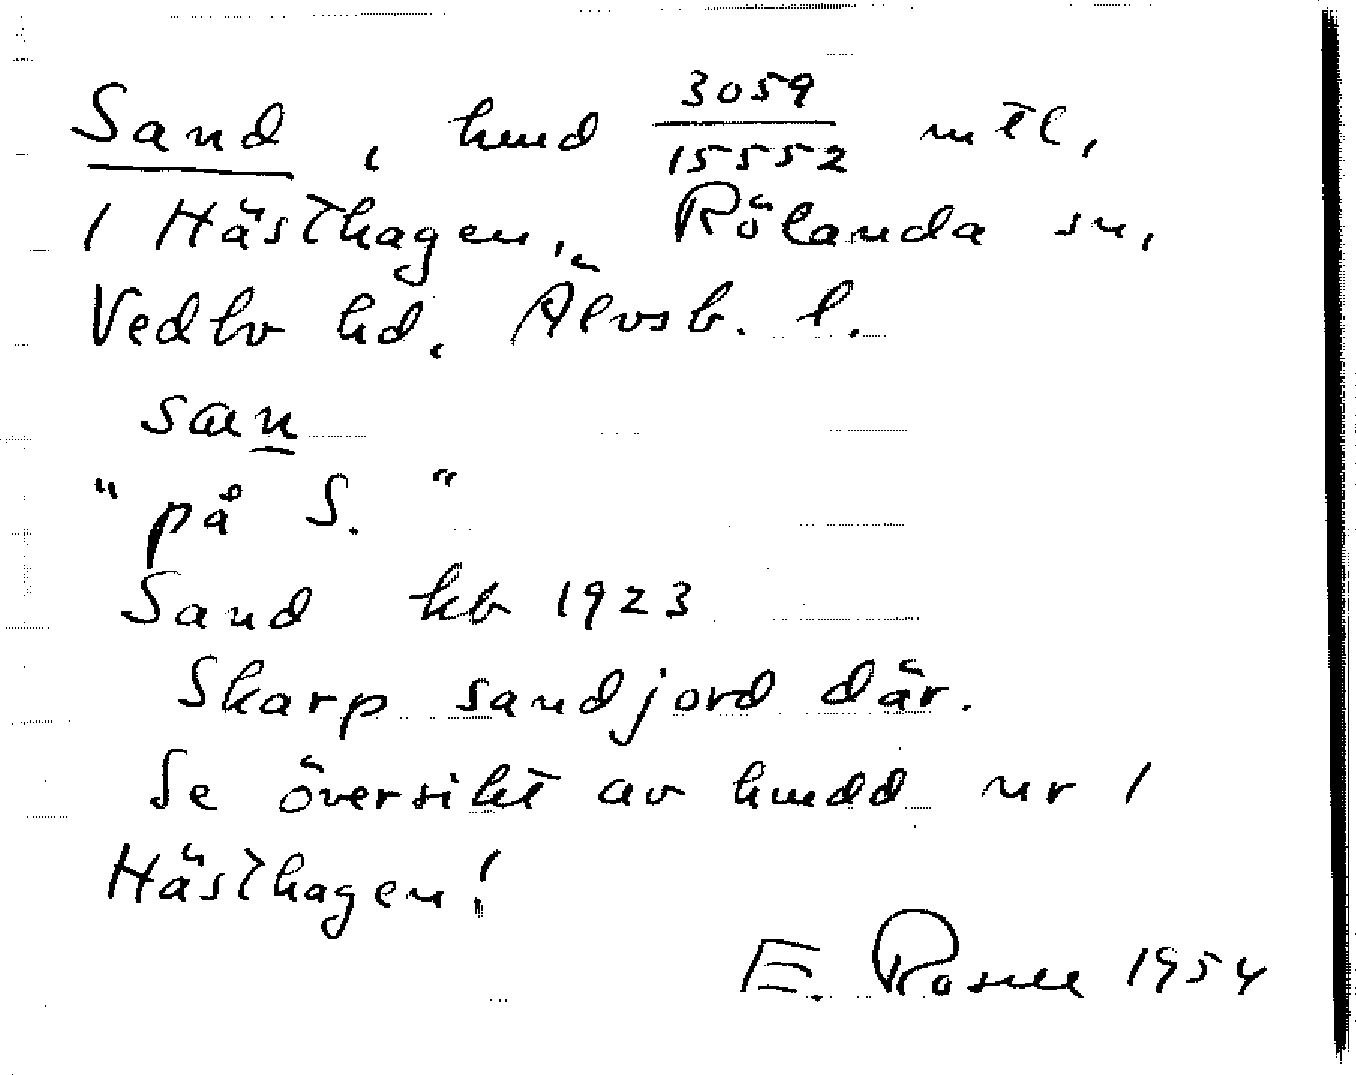 Sand, hmd 3059/15552 mtl,
1 Hästhagen, Rölanda sn,
Vedbo hd, Älvsb. l.
san
"på S."
Sand kb 1923
Skarp sandjord där.
Se översikt av hmdd nr 1
Hästhagen!
E. Rosell 1954